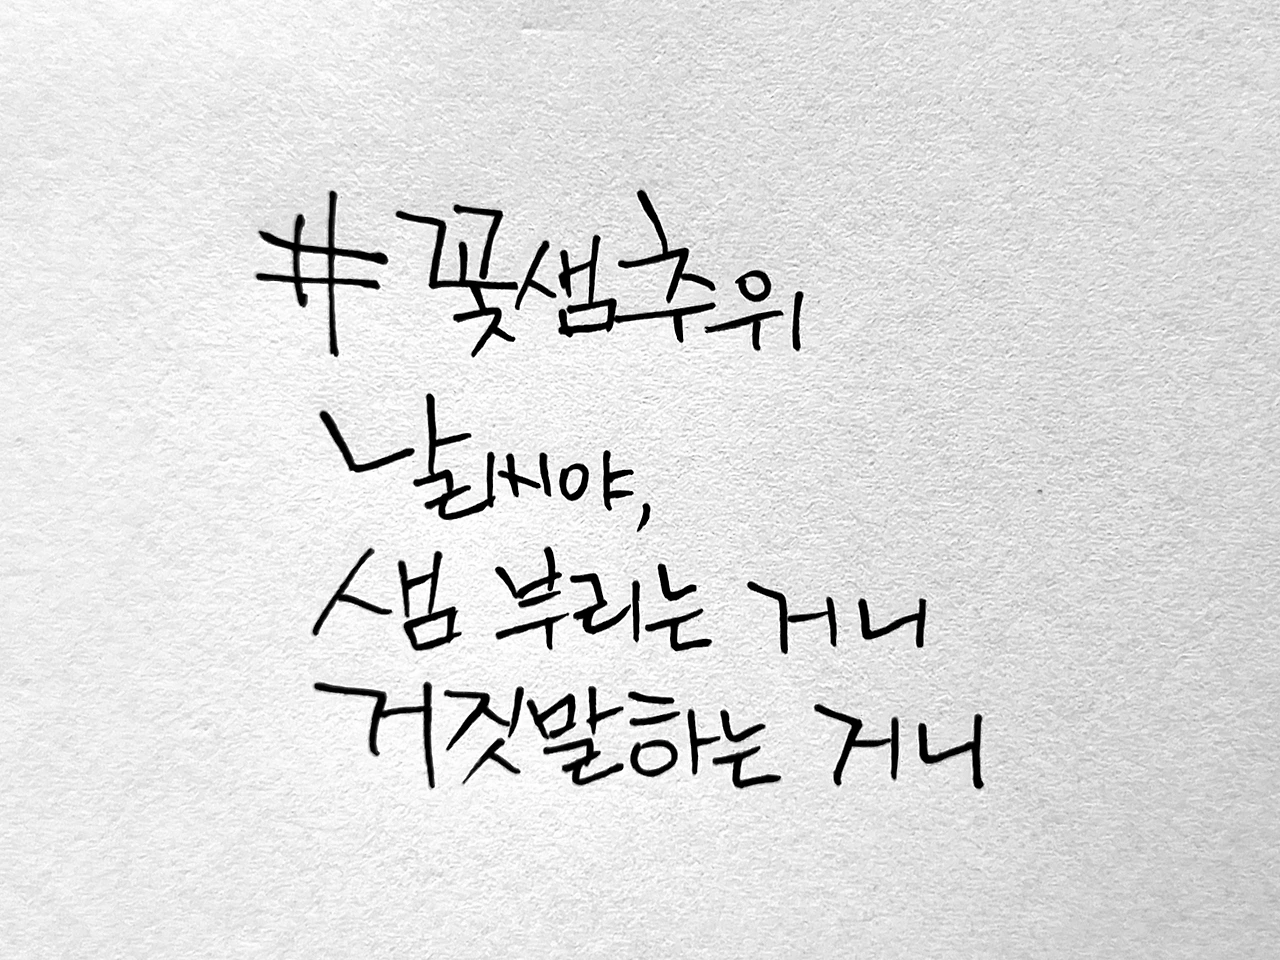 #꽃샘추위
날씨야,
샘 부리는 거니
거짓말하는 거니